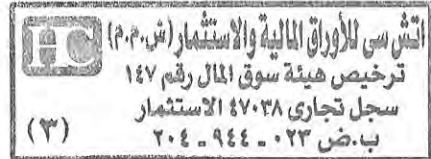 اتش سى للأوراق المالية والاستثمار (ش.م.م)
HC
ترخيص هيئة سوق المال رقم ١٤٧
سجل تجارى ٤٧٠٣٨ الاستثمار
ب.ض ٠٢٣ ـ ٩٤٤ ـ ٢٠٤
(٣)